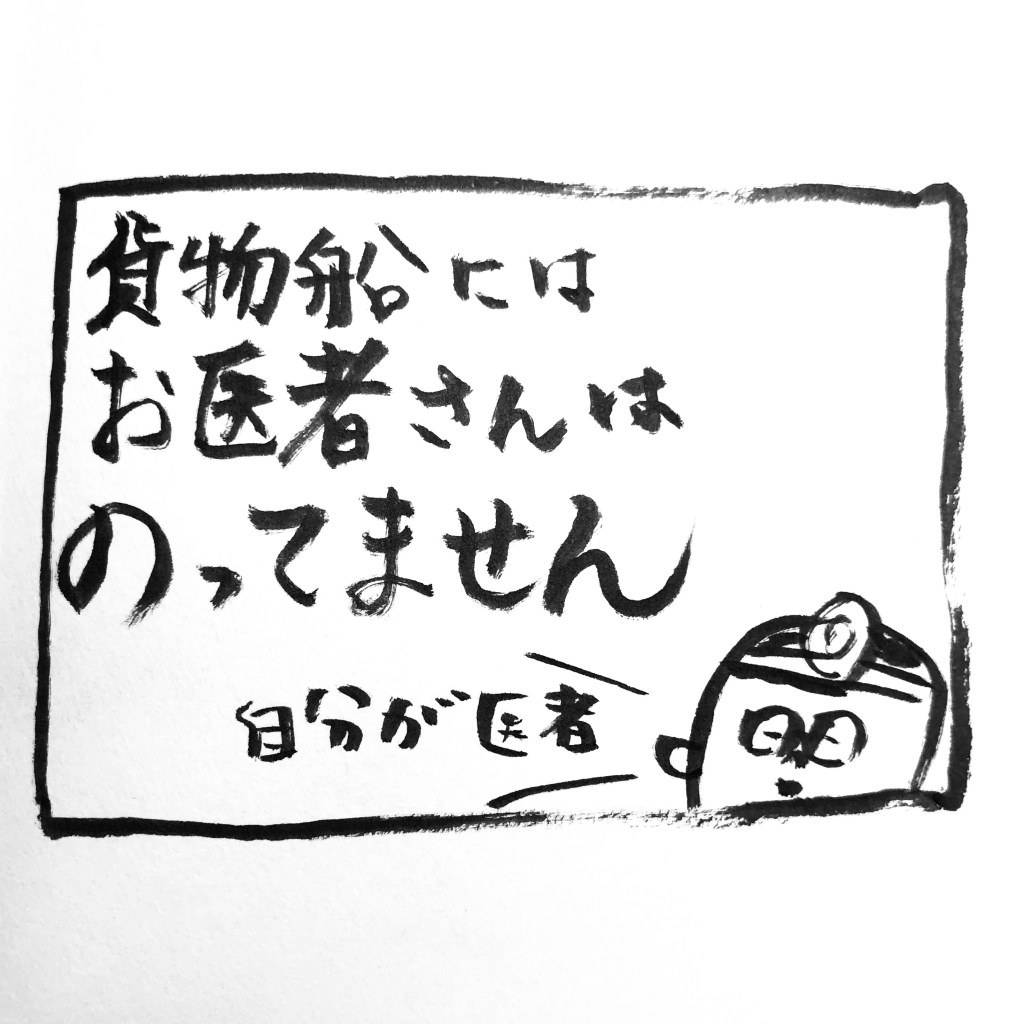 貨物船には
お医者さんは
のってません
自分が医者